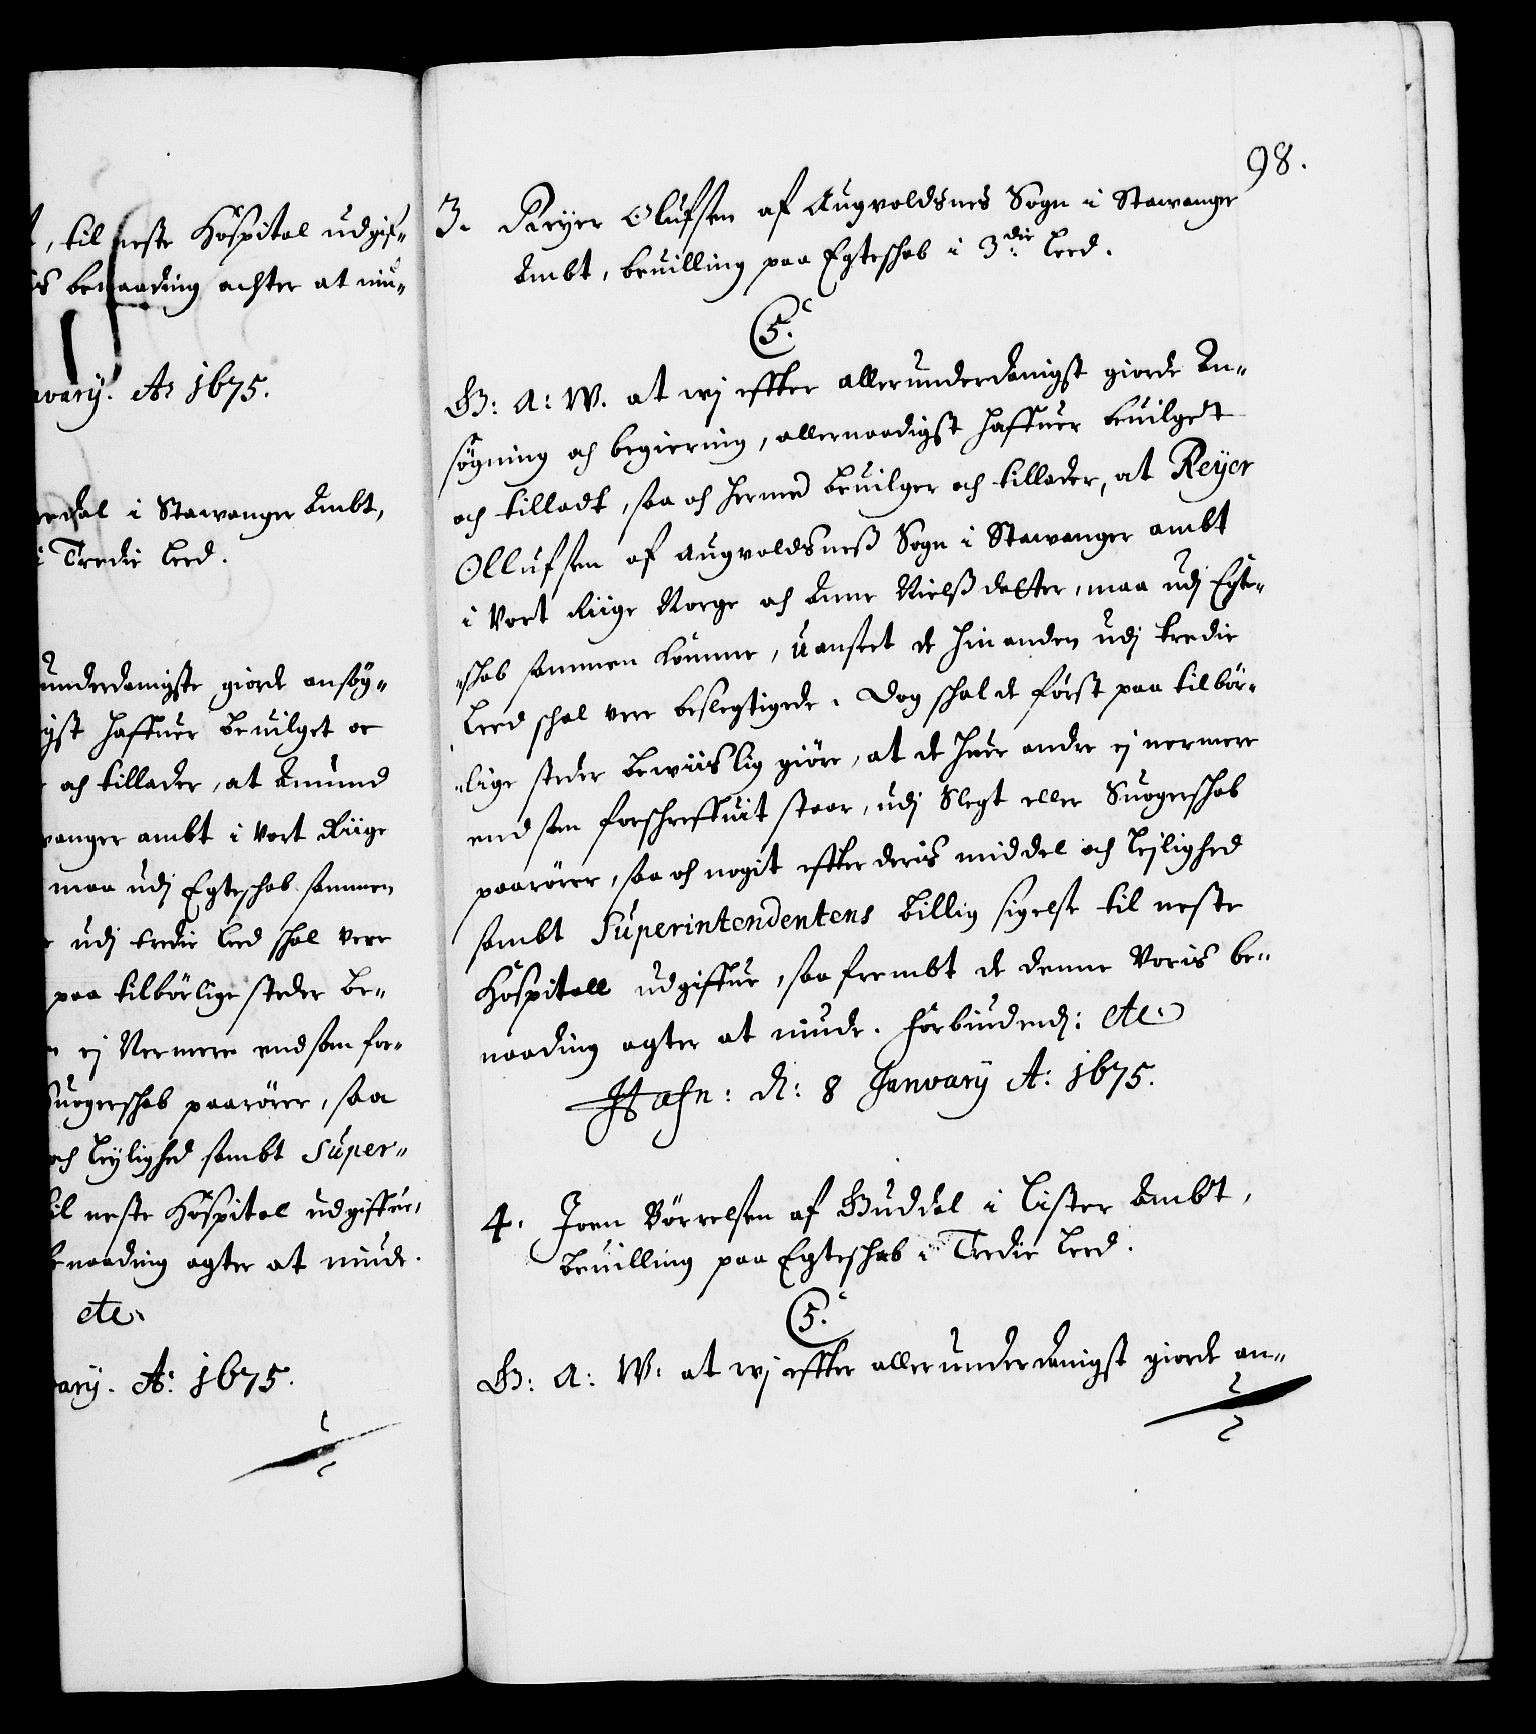 , til neste Hospital udgif„
is benaading achter at niu„
uary. Ao 1675.
dal i Stawanger Ambt,
i Tredie Leed.
underdanigste giorde ansøg„
igst haffuer beuilget oc
och tillader, at Amund
wanger ambt i Vort Riige
maa udj Egteschab sammen
udj tredie Leed schal vere
paa tilbörlige steder be„
ej Nermere end som for„
Suogerschab paarörer, saa
och Leylighed sambt Super„
til neste Hospital udgiffue,
benaading agter at niude.
etc.
uary. Ao: 1675.
98.
3. Reyer Olufsen af Augvoldsnes Sogn i Stawanger
Ambt, beuilling paa Egteschab i 3die Leed.
C5.
G: A: W. at wj effter allerunderdanigst giorde An„
søgning och begiering, allernaadigst haffuer beuilget
och tilladt, saa och hermed beuilger och tillader, at Reyer
Ollufsen af Augvoldsness Sogn i Stawanger ambt
i Vort Riige Norge och Anne Nielss datter, maa udj Egte„
„schab sammen komme, uanseet de hin anden udj tredie
Leed schal vere beslegtigede. Dog schal de först paa tilbör„
„lige steder bewiislig giöre, at de huer andre ej nermere
end som forschreffuit staar, udj Slegt eller Suogerschab
paarörer, saa och nogit effter deris middel och Lejlighed
sambt Superintendentens billig sigelse til neste
Hospitall udgiffue, saafrembt de denne Voris be„
naading agter at niude. Forbiudend: etc.
Hafn: d: 8 January Ao: 1675.
4. Joen Börrelsen af Guddal i Lister Ambt,
beuilling paa Egteschab i Tredie Leed.
C5.
G: A: W: at wj effter allerunderdanigst giorde an„